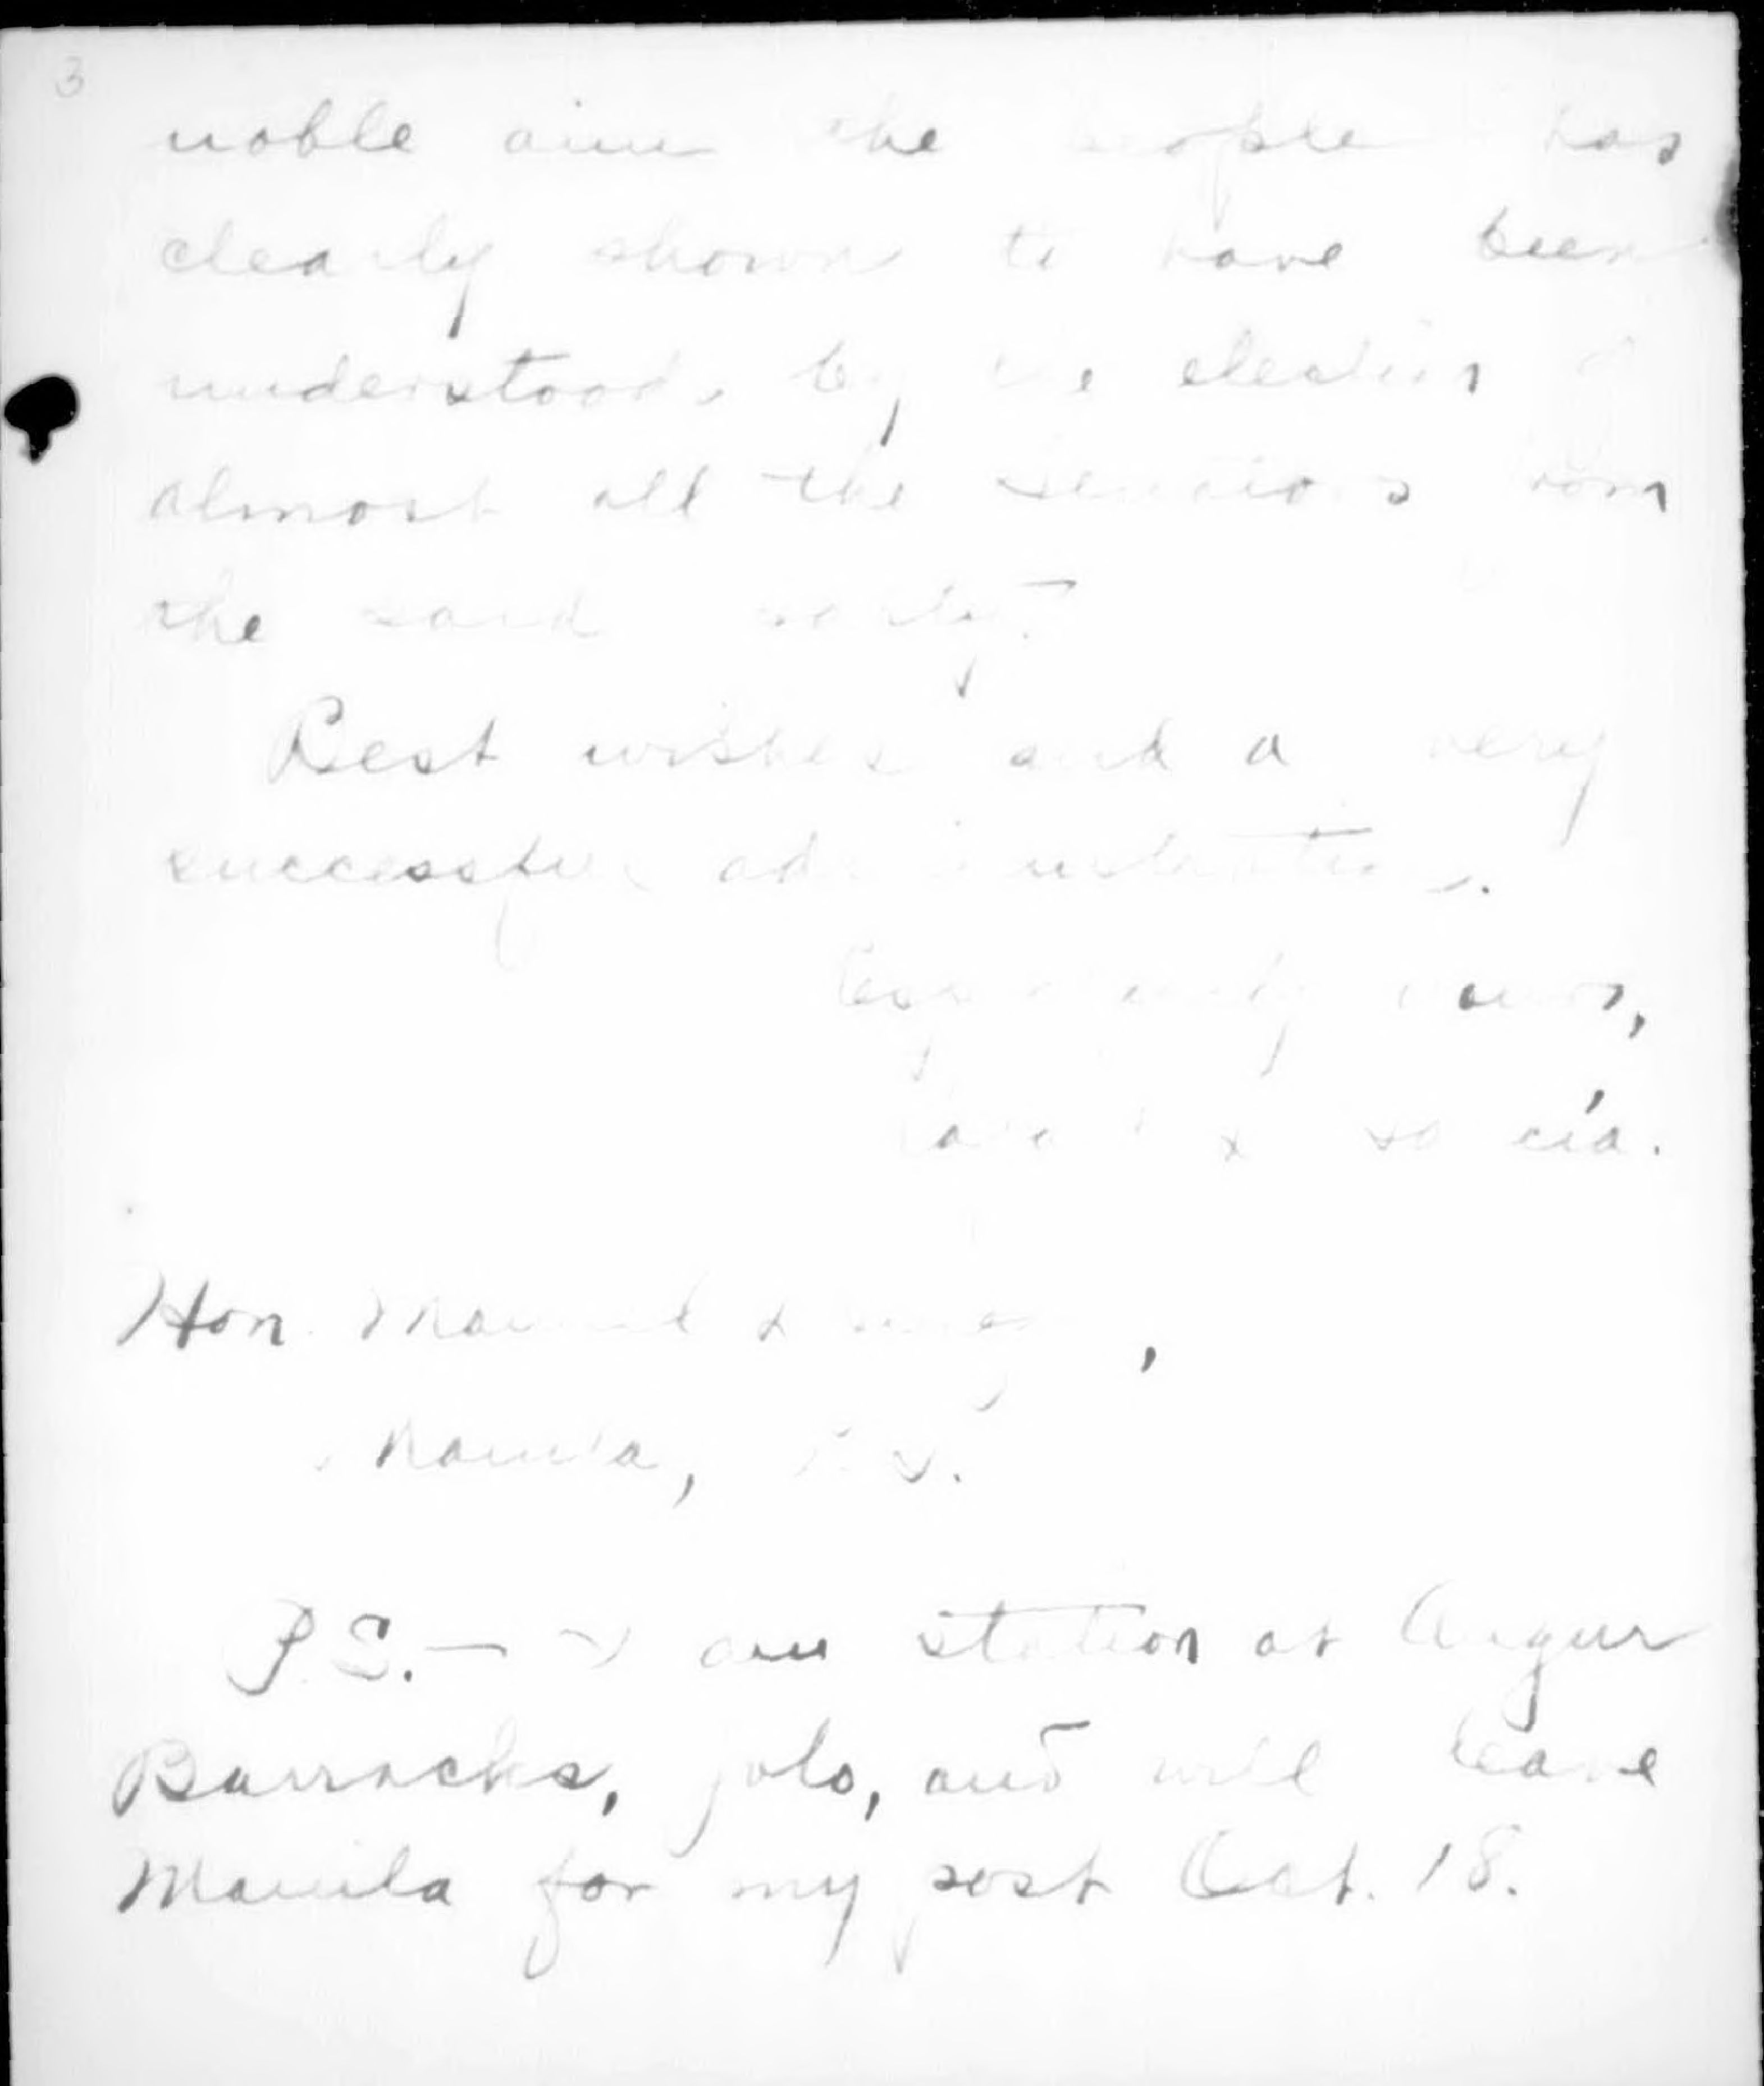 3
noble aim the people has
clearly shown to have been
understood, by the election of
almost all the senators from
the said party.
Best wishes and a very
successful administration.
Respectfully yours,
Hon. Manuel Quezon,
Manila, P.I.
P.S.— I am station at Augur
Barracks, Jolo, and will leave
Manila for my post Oct. 18.